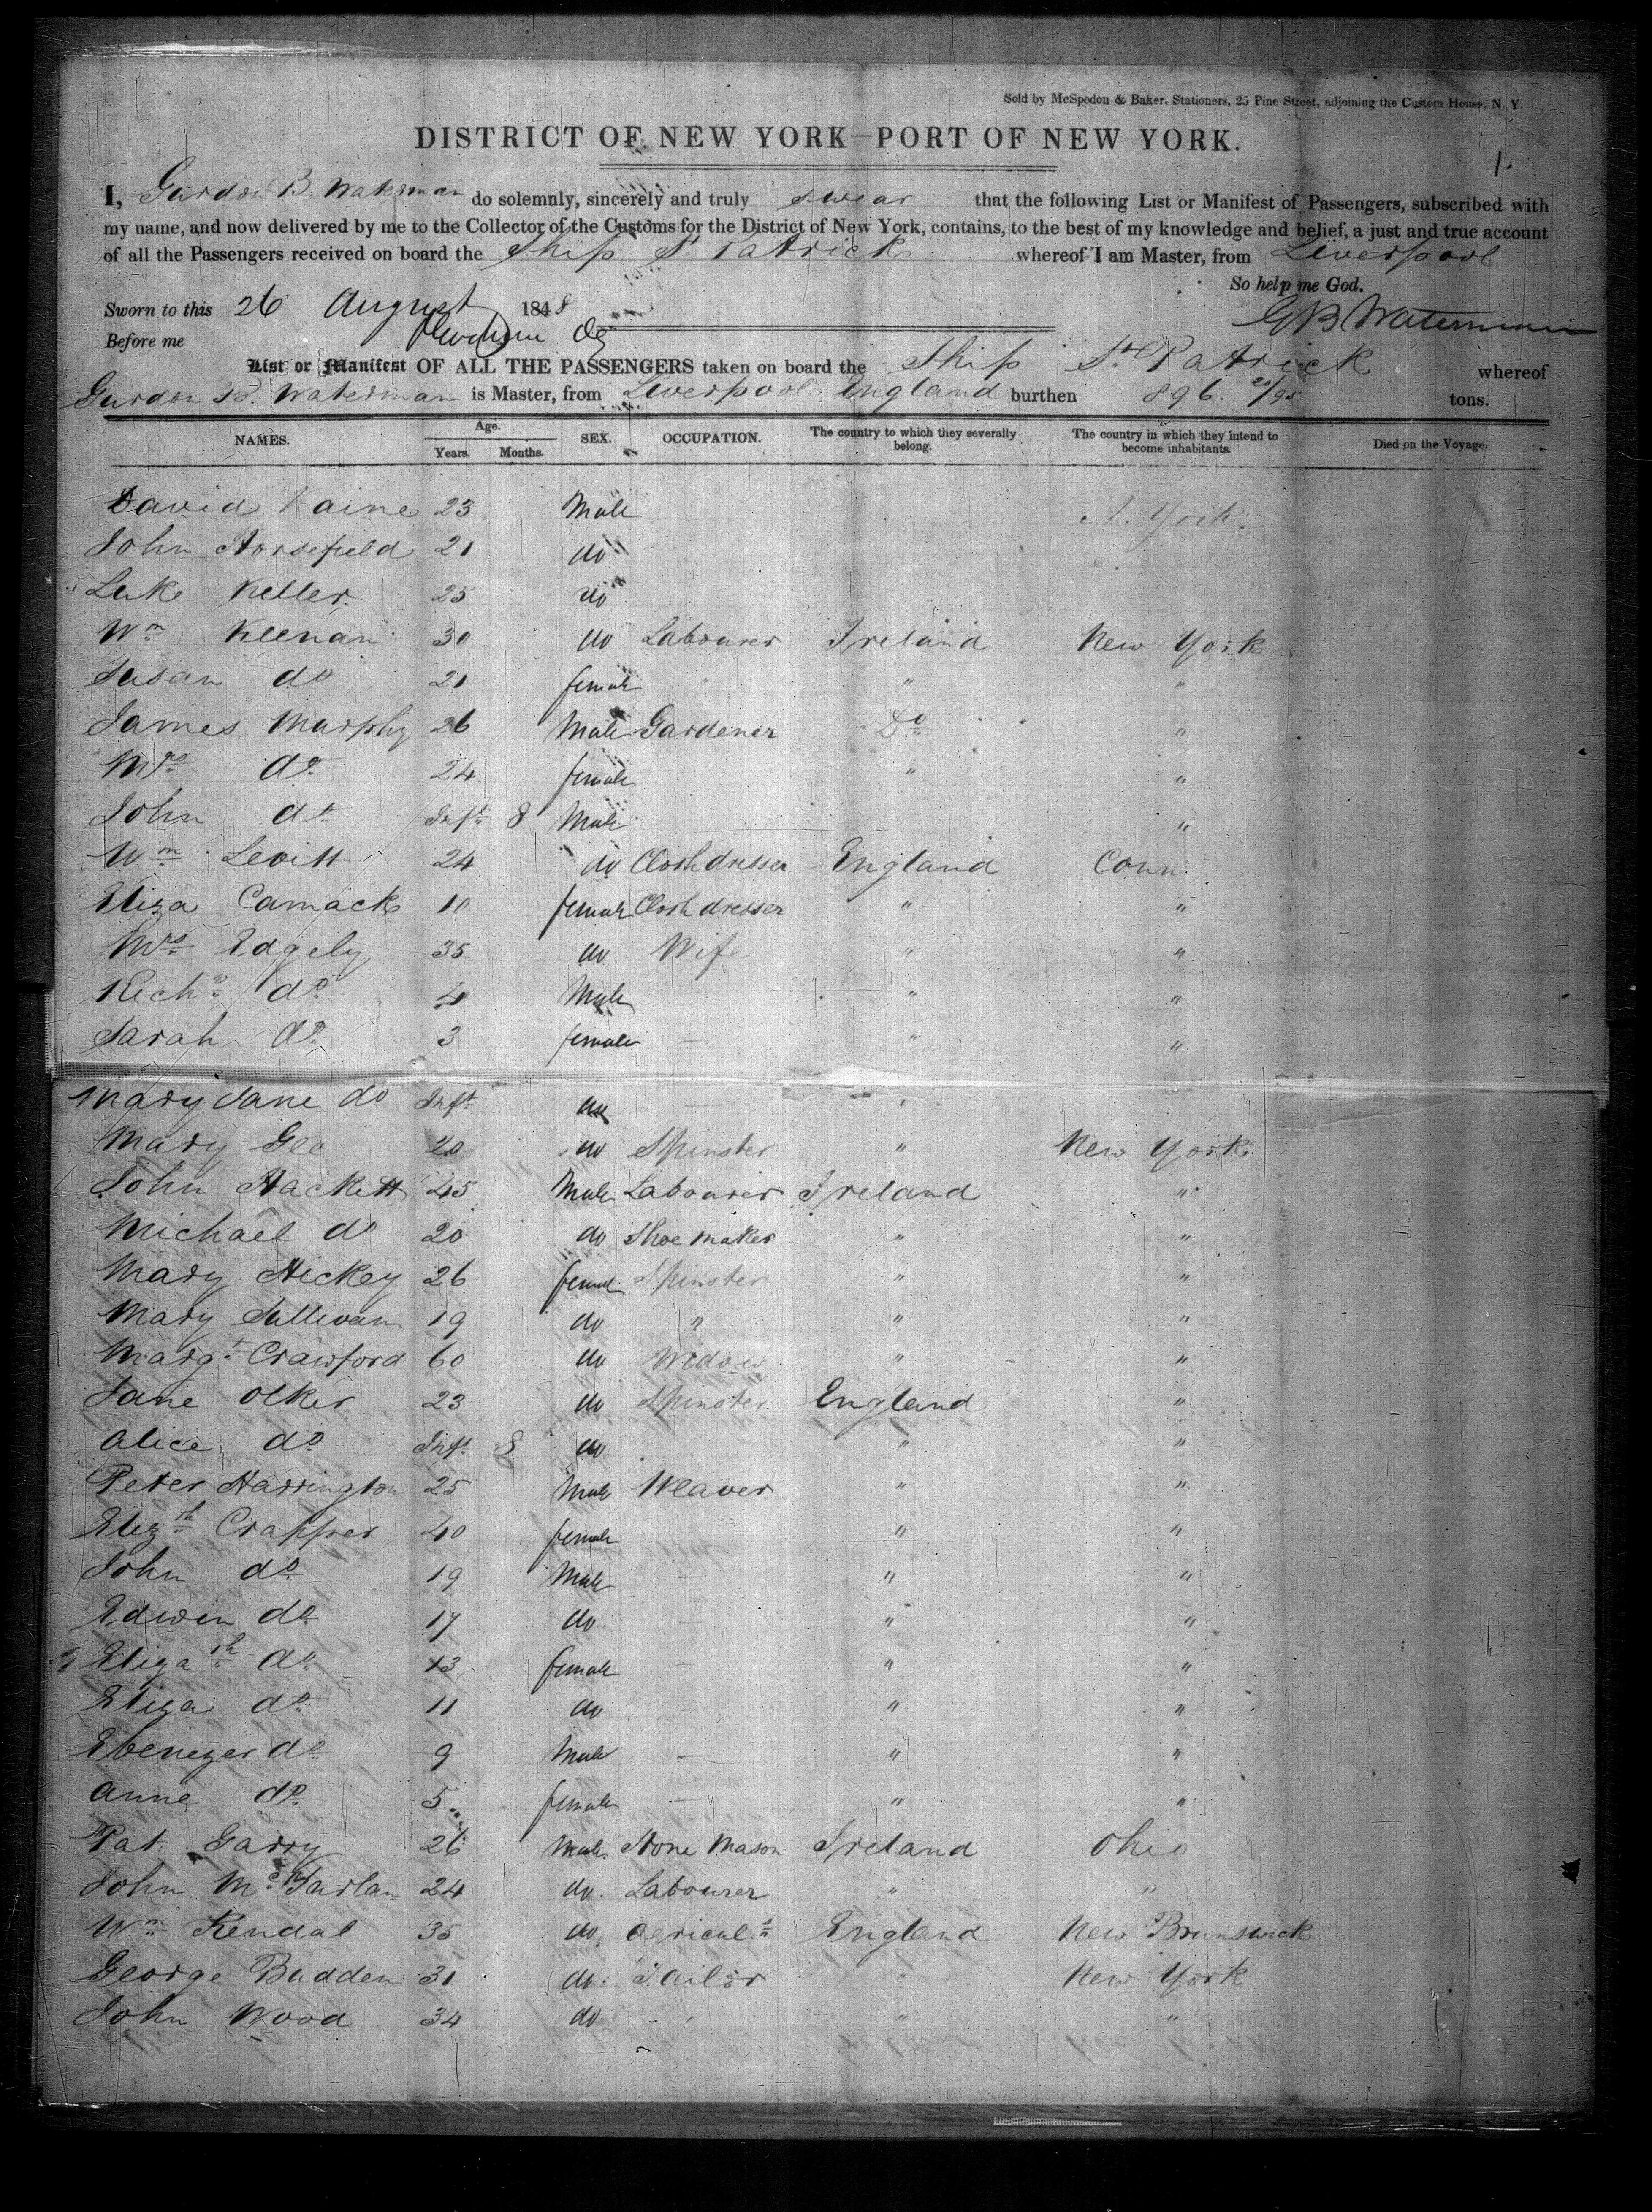 Sold by McSpedon & Baker, Stationers, 25 Pine Street, adjoining the Custom House, N. Y.
DISTRICT OF NEW YORK—PORT OF NEW YORK.
1.
I, Gurdon B. Waterman do solemnly, sincerely and truly swear that the following List or Manifest of Passengers, subscribed with
my name, and now delivered by me to the Collector of the Customs for the District of New York, contains, to the best of my knowledge and belief, a just and true account
of all the Passengers received on board the Ship St Patrick whereof I am Master, from Liverpool
So help me God.
Sworn to this 26 August 1848
G B Waterman
Before me
List or Manifest OF ALL THE PASSENGERS taken on board the Ship St. Patrick whereof
Gurdon B. Waterman is Master, from Liverpool England burthen 896. /95 tons.
NAMES. Age. Years. Months. SEX. OCCUPATION. The country to which they severally belong. The country in which they intend to become inhabitants. Died on the Voyage.
David 23 Male N. York.
John Horsefield 21 do
Luke Keller 25 do
Wm Keenan 30 do Labourer Ireland New York
Susan do 21 female " " "
James Murphy 26 Male Gardener Do "
Mrs do 24 female " "
John do Inft 8 Male "
Wm Levitt 24 do Clothdresser England Conn.
Eliza Camack 10 female Cloth dresser " "
Mrs Edgely 35 do Wife " "
Richd do 4 Male " "
Sarah do 3 female — " "
Mary Jane do Inft do — "
Mary Gee 20 do Spinster " New York
John Hackett 45 Male Labourer Ireland "
Michael do 20 do Shoe maker " "
Mary Hickey 26 female Spinster " "
Mary Sullivan 19 do " " "
Margt Crawford 60 do Widow " "
Jane Olker 23 do Spinster England "
Alice do Inft 8 do " "
Peter Harrington 25 Male Weaver " "
Elizth Crapper 40 female " "
John do 19 Male — " "
Edwin do 17 do — " "
Elizath do 13 female — " "
Eliza do 11 do — " "
Ebenezer do 9 Male — " "
Anne do 5 female — " "
Pat Garry 26 Male Stone Mason Ireland Ohio
John McFarlan 24 do Labourer " "
Wm Kendal 35 do Agricult England New Brunswick
George Budden 31 do Tailor " New York
John Wood 34 do " "